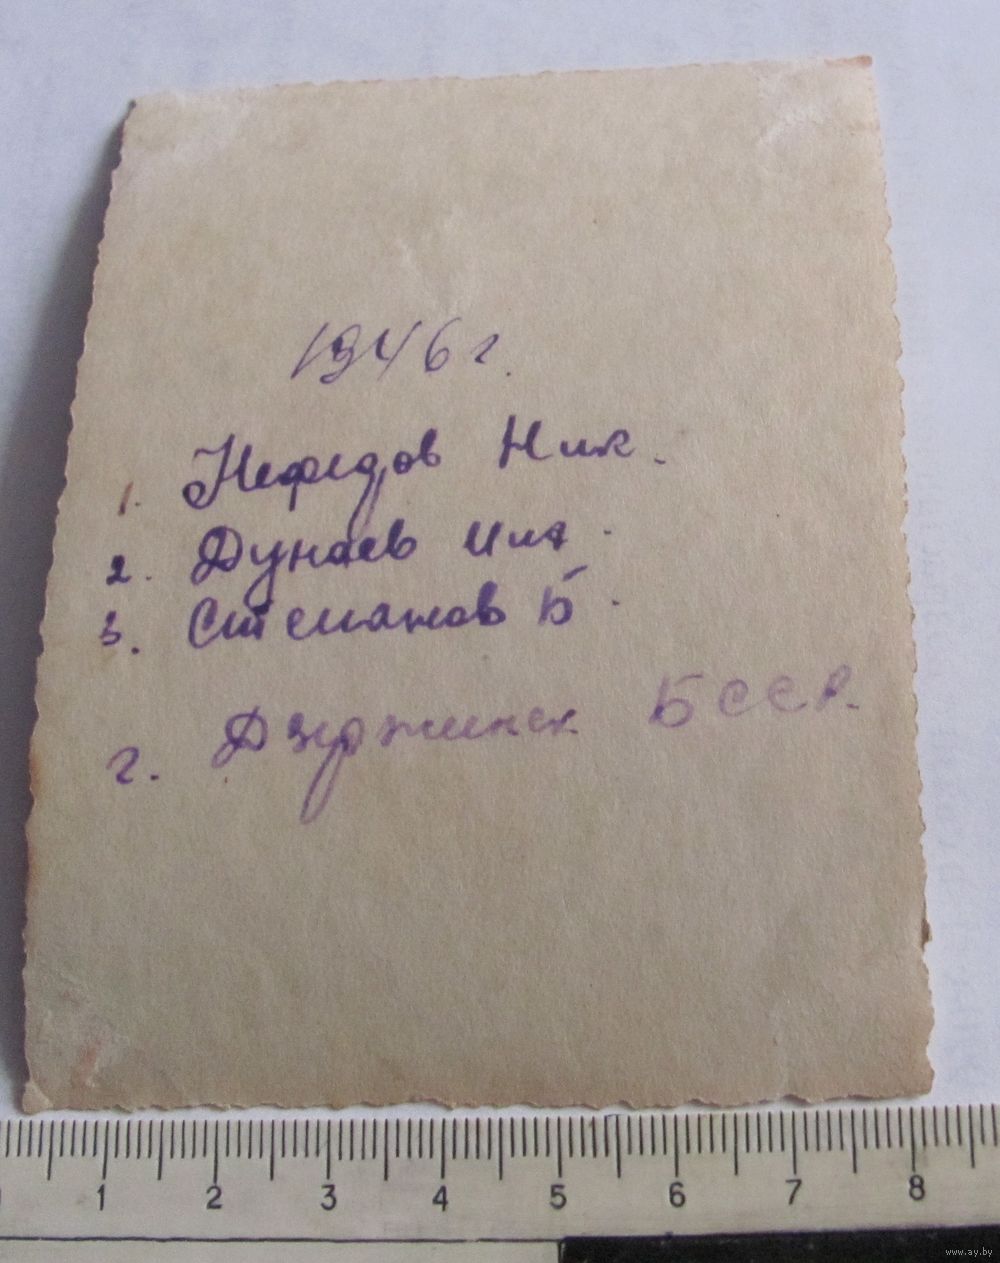 1946 г.
1. Нефедов Ник.
2. Дунаев
3. Б.
г. Дзержинск БССР.
1 2 3 4 5 6 7 8
www.ay.by